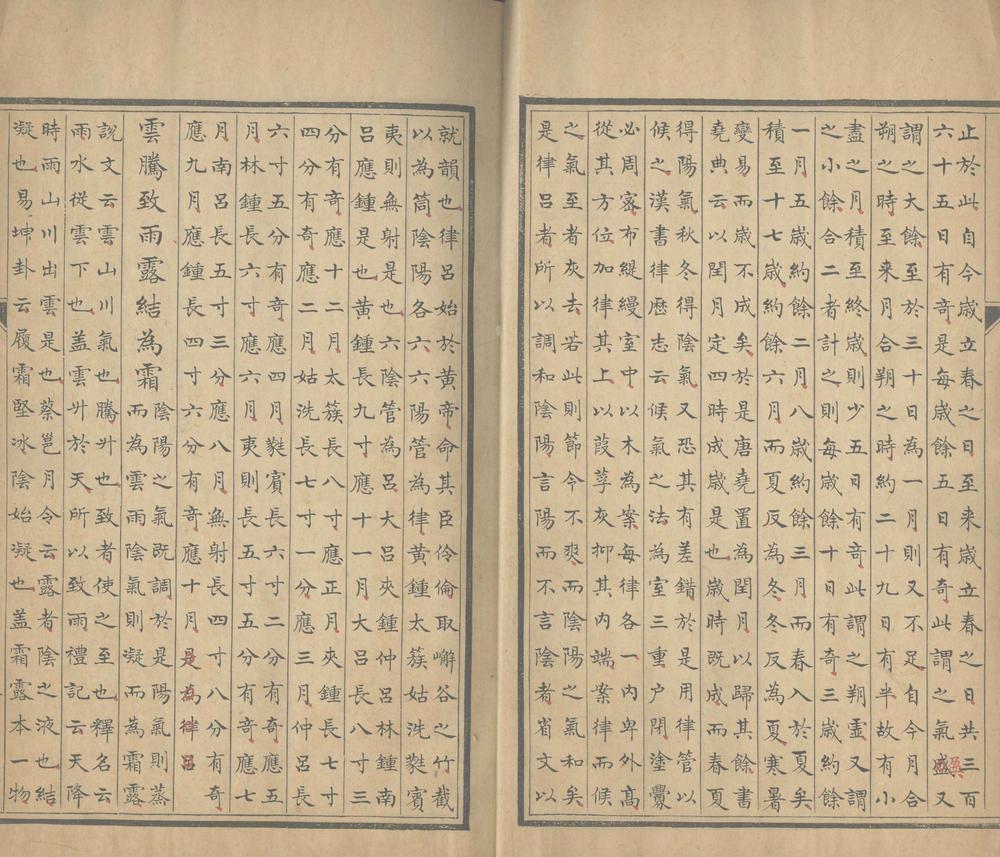 止於此自今歲立春之日至来歲立春之日共三百
六十五日有奇是每歲餘五日有奇此謂之氣盛又
盈
謂之大餘至於三十日為一月則又不足自今月合
朔之時至来月合朔之時約二十九日有半故有小
盡之月積至終歲則少五日有奇此謂之朔虛又謂
之小餘合二者計之則每歲餘十日有奇三歲約餘
一月五歲約餘二月八歲約餘三月而春入於夏矣
積至十七歲約餘六月而夏反為冬冬反為夏寒暑
變易而歲不成矣於是唐堯置為閏月以歸其餘書
堯典云以閏月定四時成歲是也歲時既成而春夏
得陽氣秋冬得陰氣又恐其有差錯於是用律管以
候之漢書律歷志云候氣之法為室三重户閉塗釁
必周宻布緹縵室中以木為案每律各一内卑外高
從其方位加律其上以葭莩灰抑其内端案律而候
之氣至者灰去若此則節今不爽而陰陽之氣和矣
是律吕者所以調和陰陽言陽而不言陰者省文以
就韻也律吕始於黄帝命其臣伶倫取嶰谷之竹截
以為筒陰陽各六六陽管為律黄鍾太簇姑洗蕤賓
夷則無射是也六陰管為吕大吕夾鍾仲吕林鍾南
吕應鍾是也黄鍾長九寸應十一月大吕長八寸三
分有奇應十二月太簇長八寸應正月夾鍾長七寸
四分有奇應二月姑洗長七寸一分應三月仲吕長
六寸五分有奇應四月蕤賓長六寸二分有奇應五
月林鍾長六寸應六月夷則長五寸五分有奇應七
月南吕長五寸三分應八月無射長四寸八分有奇
應九月應鍾長四寸六分有奇應十月是為律吕
雲騰致雨露結為霜
陰陽之氣既調於是陽氣則蒸
而為雲雨陰氣則凝而為霜露
說文云雲山川氣也騰升也致者使之至也釋名云
雨水從雲下也盖雲升於天所以致雨禮記云天降
時雨山川出雲是也蔡邕月令云露者陰之液也結
凝也易坤卦云履霜堅冰陰始凝也盖霜露本一物